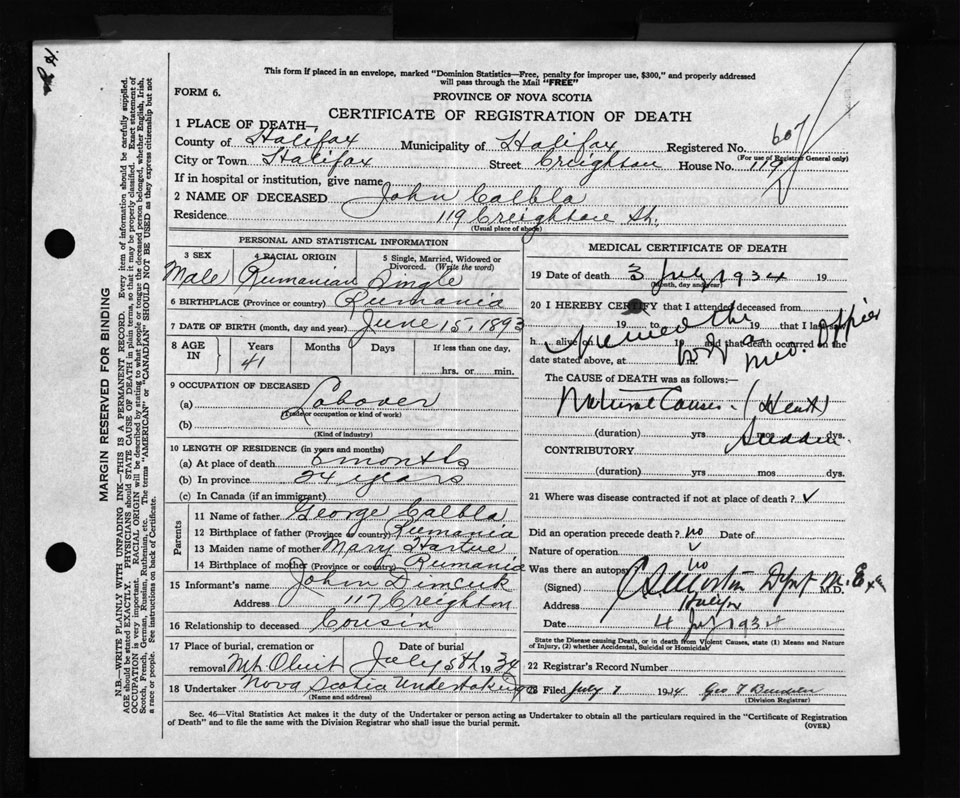 This form if placed in an envelope, marked "Dominion Statistics—Free, penalty for improper use, $300," and properly addressed
will pass through the Mail "FREE"
FORM 6.
PROVINCE OF NOVA SCOTIA
CERTIFICATE OF REGISTRATION OF DEATH
1 PLACE OF DEATH—
County of Halifax Municipality of Halifax Registered No. 607
(For use of Registrar General only)
City or Town Halifax Street Creighton House No. 119
If in hospital or institution, give name
2 NAME OF DECEASED John Calbla
Residence 119 Creighton St.
(Usual place of abode)
PERSONAL AND STATISTICAL INFORMATION
3 SEX 4 RACIAL ORIGIN 5 Single, Married, Widowed or
Divorced. (Write the word)
Male Rumanian Single
6 BIRTHPLACE (Province or country) Rumania
7 DATE OF BIRTH (month, day and year) June 15, 1893
8 AGE IN Years Months Days If less than one day,
41 hrs. or min.
9 OCCUPATION OF DECEASED
(a) Laborer
(Trade or occupation or kind of work)
(b)
(Kind of industry)
10 LENGTH OF RESIDENCE (in years and months)
(a) At place of death months
(b) In province 24 years
(c) In Canada (if an immigrant)
Parents
11 Name of father George Calbla
12 Birthplace of father (Province or country) Rumania
13 Maiden name of mother Mary
14 Birthplace of mother (Province or country) Rumania
15 Informant's name John
Address 117 Creighton
16 Relationship to deceased Cousin
17 Place of burial, cremation or removal Date of burial
Mt Olivet July 5th 1934
18 Undertaker Nova Scotia Undertaking
(Name and address)
MEDICAL CERTIFICATE OF DEATH
19 Date of death 3 July 1934 19
(Month, day and year)
20 I HEREBY CERTIFY that I attended deceased from
19 to 19 that I last saw
h alive on 19 and that death occurred on the
date stated above, at m.
The CAUSE of DEATH was as follows:—
Natural Causes. (Heart)
(duration) yrs mos dys.
Sudden.
CONTRIBUTORY
(duration) yrs mos dys.
21 Where was disease contracted if not at place of death?
Did an operation precede death? no Date of
Nature of operation
Was there an autopsy no
(Signed) M.D.
Address Halifax
Date 4 July 1934
State the Disease causing Death, or in death from Violent Causes, state (1) Means and Nature
of Injury, (2) whether Accidental, Suicidal or Homicidal
22 Registrar's Record Number
23 Filed July 7 1934
(Division Registrar)
Sec. 46—Vital Statistics Act makes it the duty of the Undertaker or person acting as Undertaker to obtain all the particulars required in the "Certificate of Registration
of Death" and to file the same with the Division Registrar who shall issue the burial permit.
(OVER)
MARGIN RESERVED FOR BINDING
N.B.—WRITE PLAINLY WITH UNFADING INK—THIS IS A PERMANENT RECORD. Every item of information should be carefully supplied.
AGE should be stated EXACTLY. PHYSICIANS should STATE CAUSE OF DEATH in plain terms, so that it may be properly classified. Exact statement of
OCCUPATION is very important. RACIAL ORIGIN will be described by stating to what people or tongue the deceased person belonged, whether English, Irish,
Scotch, French, German, Russian, Ruthenian, etc. The terms "AMERICAN" or "CANADIAN" SHOULD NOT BE USED as they express citizenship but not
a race or people. See instructions on back of Certificate.